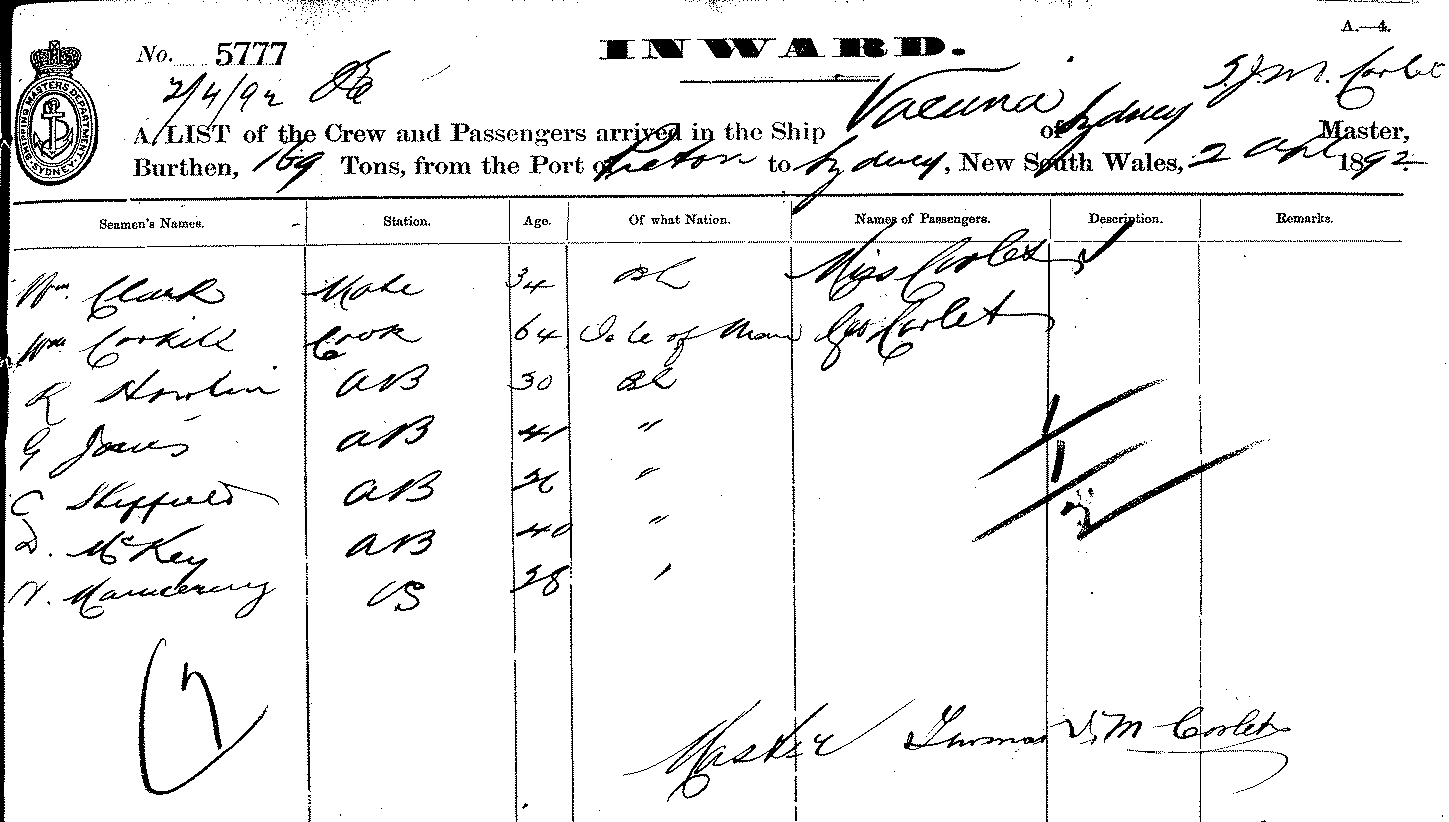 A.—4.
No. 5777
INWARD.
2/4/92
T.J.M. Corlet
A LIST of the Crew and Passengers arrived in the Ship Vacuna of Sydney Master,
Burthen, 169 Tons, from the Port of Picton to Sydney, New South Wales, 2 Apl 1892.
SHIPPING MASTERS DEPARTMENT SYDNEY
Seamen's Names. Station. Age. Of what Nation. Names of Passengers. Description. Remarks.
Wm. Clark Mate 34 Miss Corlet
Wm Corkill Cook 64 Isle of Man Corlet
R Howlin AB 30
G Jones AB 41 "
C Sheffield AB 26 "
D. McKey AB 40 "
28
7
1
1
2
Master Thomas J. M Corlet